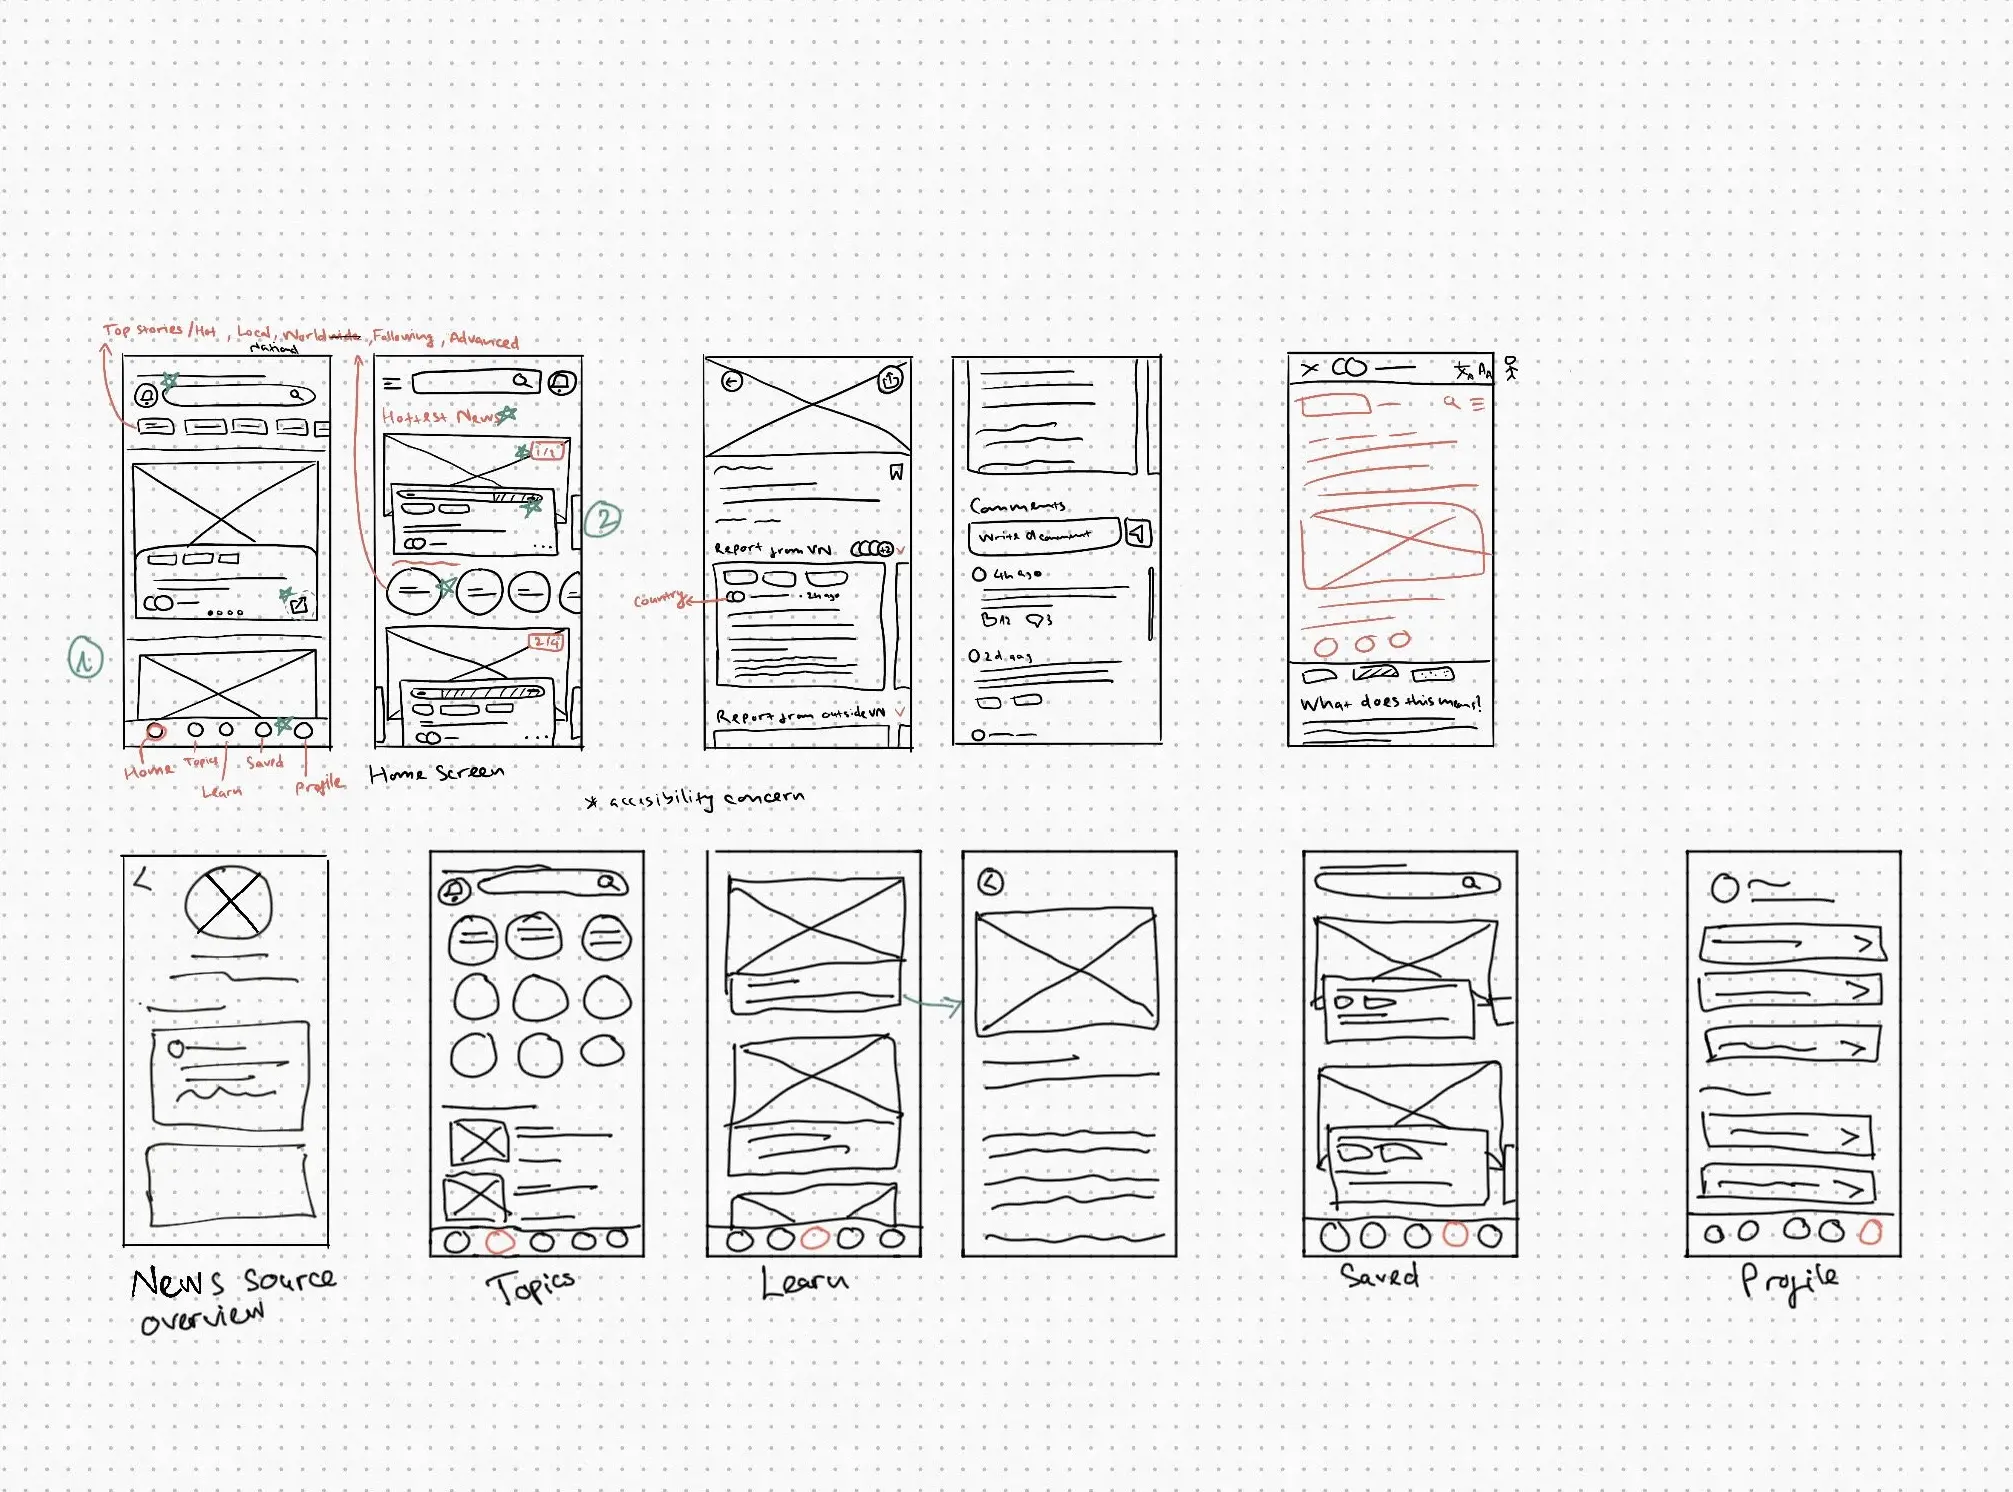 Top stories/Hot, Local, Worldwide, Following, Advanced
National
Hottest News
1/2
1.
2
2/4
Home
Topics
Learn
Saved
Profile
Home Screen
Report from VN
+2
Country
2h ago
Report from outside VN
Comments
Write a comment
4h ago
12
3
2d ago
文A AA
What does this mean?
* accesibility concern
News source
overview
Topics
Learn
Saved
Profile